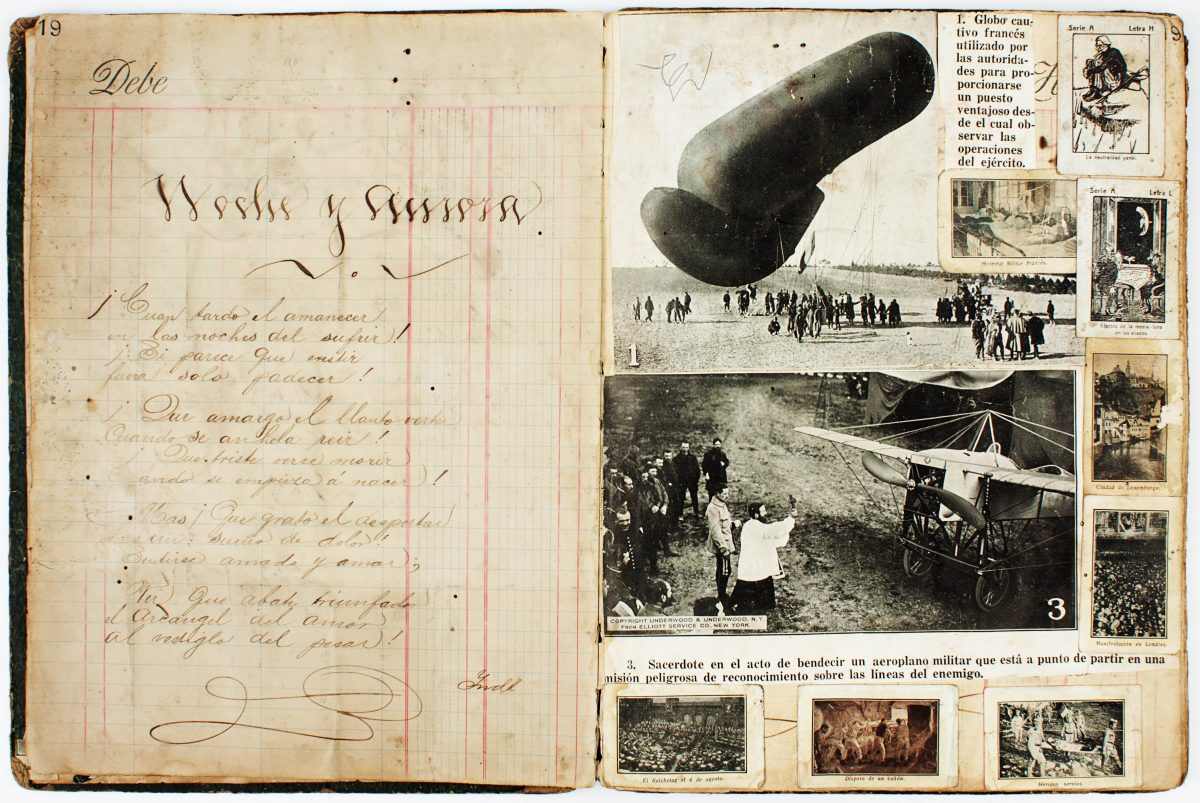 19
Debe
Noche y Aurora
¡Cuan tardo el amanecer
en las noches del sufrir!
¡Si parece que existir
fuera solo padecer!
¡Que amargo el llanto
Cuando se anhela reir!
¡Que triste verse morir
cuando se empieza á nacer!
Mas ¡Que grato el despertar
de un sueño de dolor!
Sentirse amado y amar;
Ver que abate triunfado
el arcangel del amor
al vestiglo del pesar!
1. Globo cau-
tivo francés
utilizado por
las autorida-
des para pro-
porcionarse
un puesto
ventajoso des-
de el cual ob-
servar las
operaciones
del ejército.
H
9
Serie A Letra H
La neutralidad yanki.
Hospital Militar francés.
Serie A Letra L
Efectos de la media-luna
en los aliados.
1
Ciudad de Luxemburgo.
Manifestación en Londres.
COPYRIGHT UNDERWOOD & UNDERWOOD, N.Y.
FROM ELLIOTT SERVICE CO., NEW YORK.
3
3. Sacerdote en el acto de bendecir un aeroplano militar que está a punto de partir en una
misión peligrosa de reconocimiento sobre las líneas del enemigo.
El Reichstag el 4 de agosto.
Disparo de un cañón.
Heridos servios.